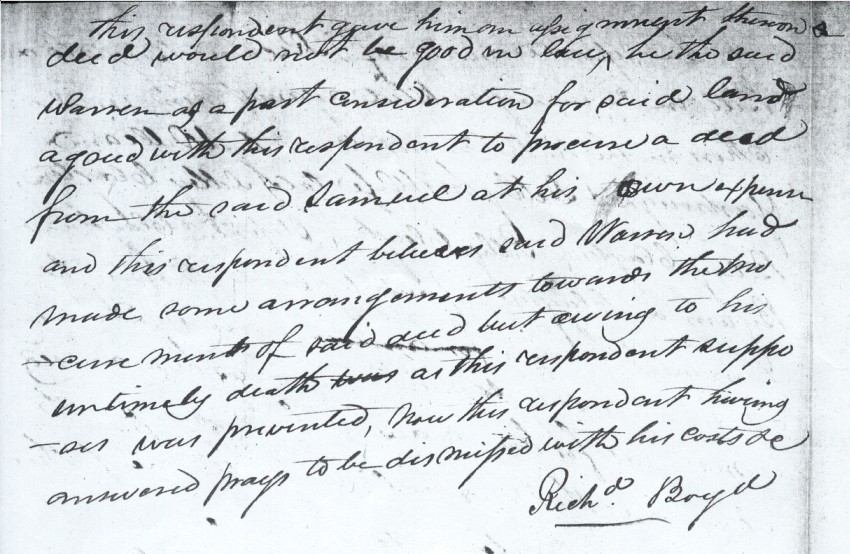 this respondent gave him an assignment thereon a
deed would not be good in law, he the said
Warren as a part consideration for said land
agreed with this respondent to procure a deed
from the said Samuel at his own expence
and this respondent believes said Warren had
made some arrangements towards the pro
-curement of said deed but owing to his
untimely death was as this respondent suppo
-ses was prevented, now this respondent having
answered prays to be dismissed with his costs &c
Richd. Boyd